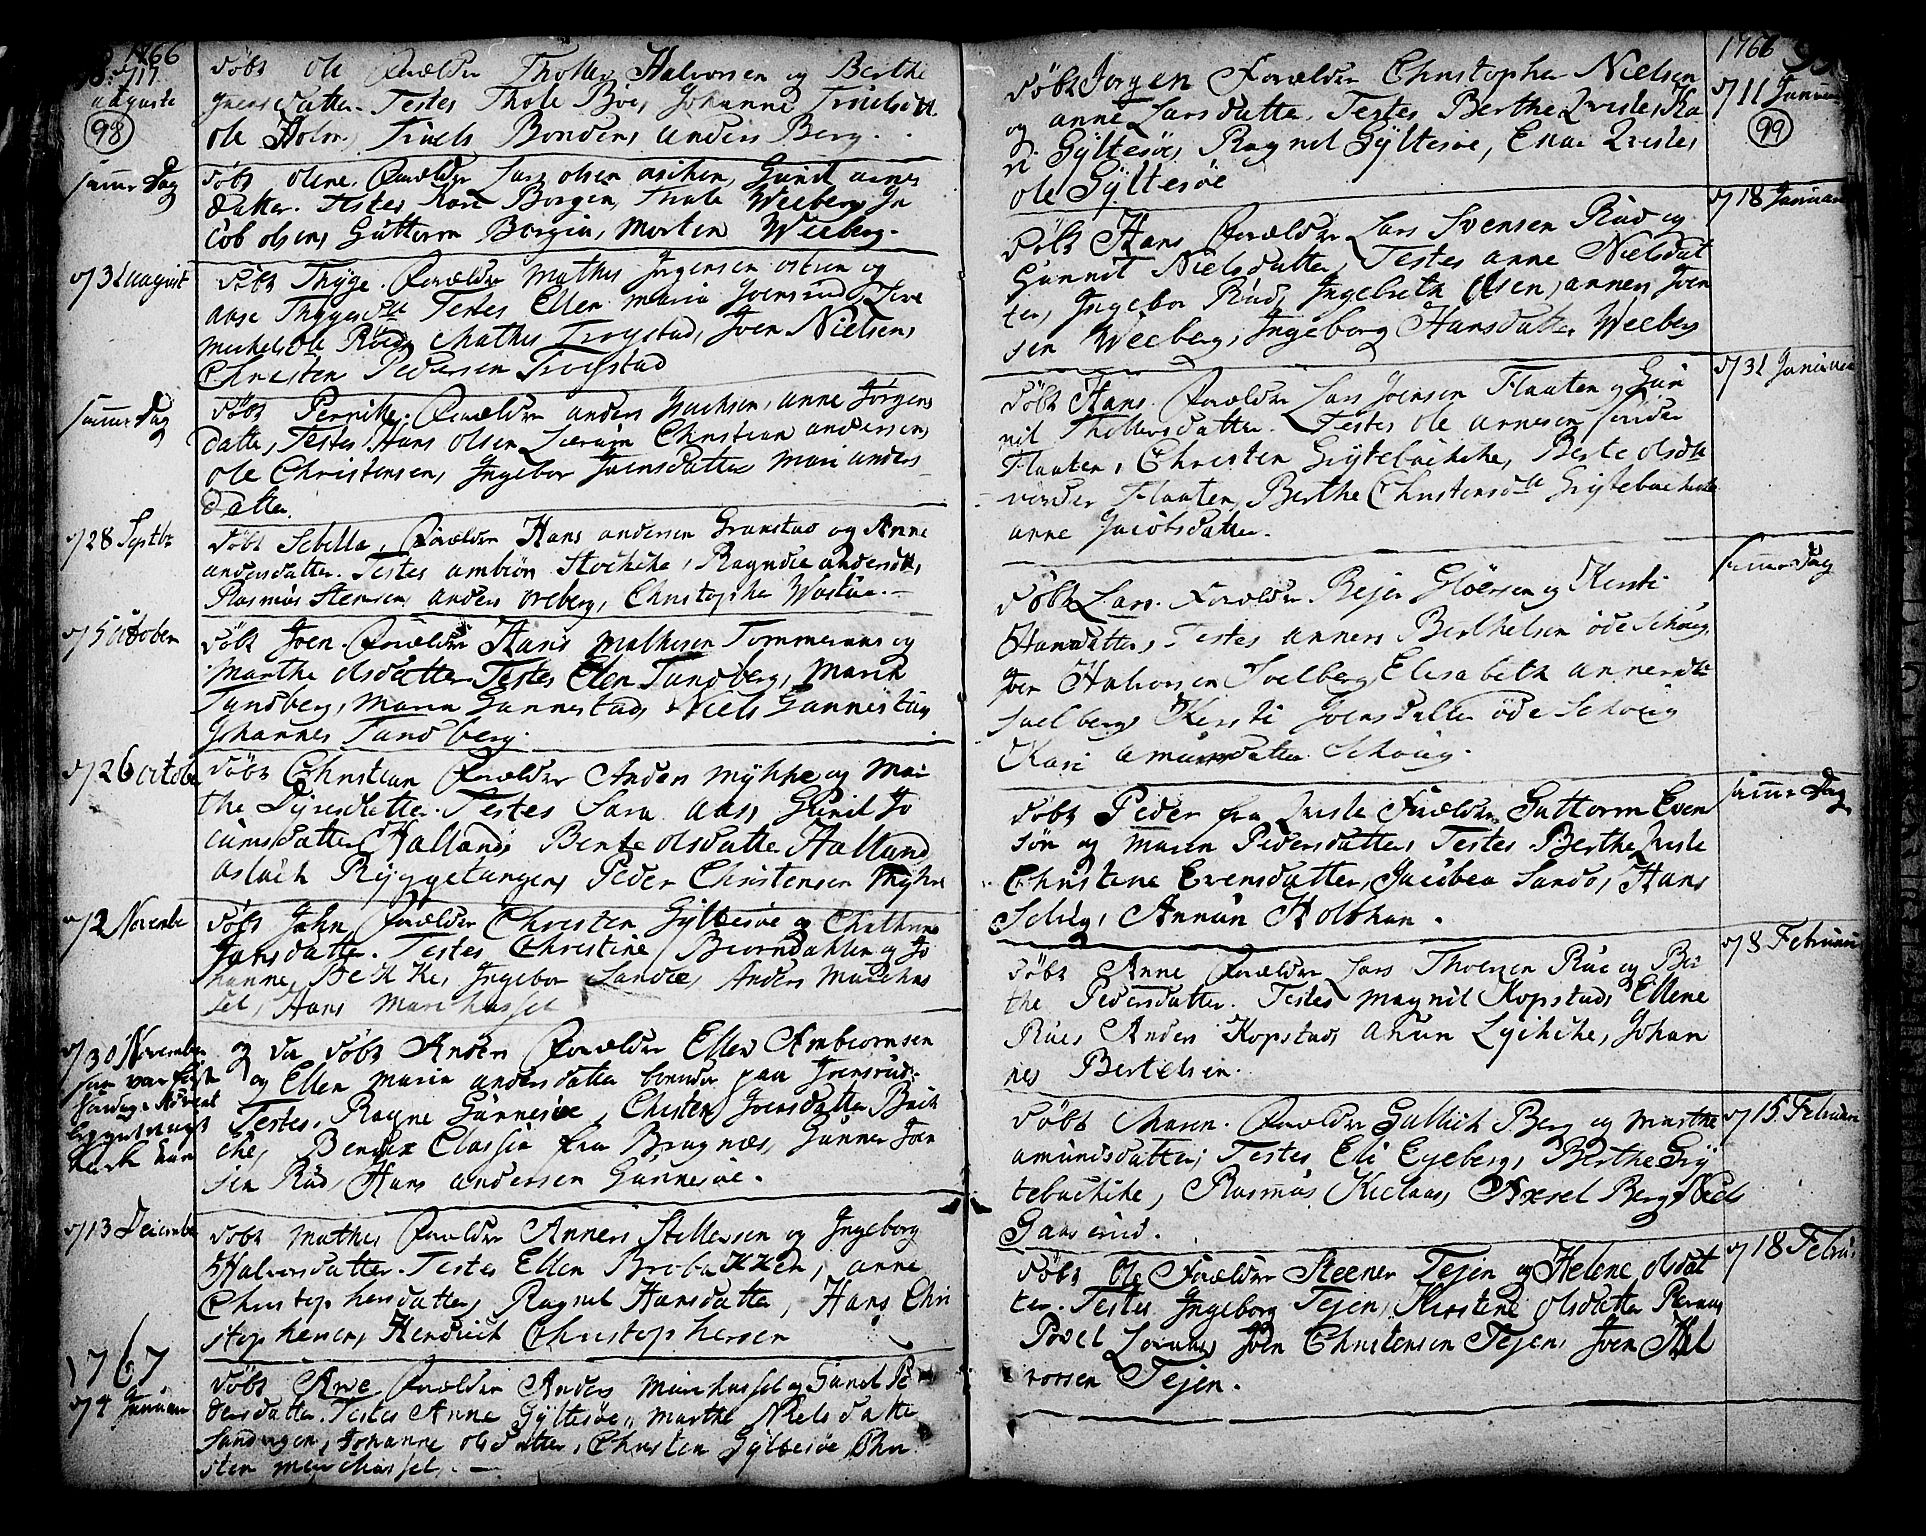 1766
d 17
auguste
98
døbt Ole Forældre Tholler Halvorsen og Berthe
Jens datter. Testes Thole Bøe, Johanne Truelsdtt
Ole Holm, Truels Bonden, anders Berg.
samme Dag
døbt olene. Forældre Lars olsen asken, Gunil arnes
datter. Testes Kari Borgen, Thale Weeberg, Ja
cob olsen, Guttorm Borgen, Morten Weeberg.
d 31 august
døbt Thyge. Forældre Mathis Jørgensen ostsen og
aase Thyges dtt Testes Ellen maria Joensrud, Live
Michelsdtt Rud, Mathis Trogstad, Joen Nielsen,
Christen Pedersen Trogstad
samme Dag
døbt Pernille. Forældre anders Isachsen, anne Jørgens
datter, Testes Hans olsen Christian andersen,
Ole Christensen, Ingebor Joensdatter Mari anders
datter.
d 28 Septbr
døbt Sebilla, Forældre Hans andersen Granstad og Anne
andersdatter. Testes ambiørn Stockike, Ragndie andersdtt,
Rasmus Stensen, anders oreberg, Christopher
d 5 october
døbt Joen. Forældre Hans Mathisen Tommeraas og
Marthe olsdatter Testes Elen Tundberg, Maria
Tundberg, Maria Gunnestad, Niels Gunnestad
Johannes Tundberg.
d 26 octobr
døbt Christian Forældre Anders Myhre og Mar
the Dyresdatter. Testes Sara aas, Gunil Jo
cumsdatter Halland, Bente olsdatter Halland
aslach Ryggetangen, Peder Christensen Myhre
d 2 Novembr
døbt John, Forældre Christen Gyltesøe og Cathrine
Jansdatter. Testes Christine Biørndahlen og Jo
hanne Bekke, Ingebor Sandøe, Anders Marchus
sel, Hans Marchussel
d 30 November
som var første
Søndag i Advent
og da døbt Anders Forældre Ellev Ambiørnsen
og Ellen Maria andersdatter boende paa Joensrud.
Testes. Ragne Gunnesøe, Chisten Joensdatter Back
che, Bendix Clasen fra Bragnæs, Gunner Joen
sen Rud, Hans andersen Gunnesøe.
d 13 Decembr
døbt Mathis Forældre Anners Stillessen og Ingeborg
Halvorsdatter. Testes Ellen Brobakken, anne
Christophersdatter, Ragnil Hansdatter, Hans Chri
stophersen, Hendrich Christophersen
1767
d 4 Januar
døbt Arve Forældre Anders Marchussel og Gunel Pe
dersdatter. Testes Anne Gyltesøe, Marthe Nielsdatter
Sandungen, Johanne olsdatter, Christen Gyltesøe Chri
sten Marchussel.
1766
d 11 Januar
99
døbt Jørgen Forældre Christopher Nielsen
og anne Larsdatter. Testes Berthe Qviste, Ka
ri Gyltesøe, Ragnil Gyltesøe, Enar Qviste,
ole Gyltesøe
d 18 Januar
døbt Hans Forældre Lars Svensen Rud og
Gunnil Nielsdatter, Testes anne Nielsdat
ter, Ingebor Rud, Ingebreth Olsen, anners Joen
sen Weeberg, Ingeborg Hansdatter Weeberg
d 31 Januar
døbt Hans. Forældre Lars Joensen Flaaten og Gun
nil Thollersdatter. Testes ole arnesen sønder
Flaaten, Christen Grytebackike, Berte olsdtt
nørder Flaaten, Berthe Christensdtt Grytebackike
anne Jacobsdatter.
samme Dag
døbt Lars. Forældre. Rejer Gloersen og Kersti
Hansdatter, Testes anners Berthelsen øde Schoug,
Joen Halvorsen Solberg Elisabeth annersdtt
Solberg, Kersti Joensdatter øde Schoug
Kari amunsdatter Schoug.
samme Dag
døbt Peder fra Qviste Forældre Guttorm Even
søn og Maren Pedersdatter, Testes Berthe Qviste
Christine Evensdatter, Jacobea Sandø, Hans
Selvig, Annun Holthan.
d 8 Februar
døbt Anne Forældre Lars Thoresen Rue og Ber
the Pedersdatter. Testes Magnil Kopstad, Ellene
Rue, Anders Kopstad, Anun Lychiche, Johan
nes Bertelsen.
d 15 Februar
døbt Maren. Forældre Gullich Berg og Marthe
amundsdatter, Testes Eli Eyeberg, Berthe Gry
tebackike, Rasmus Kiclaas, Axsel Berg, Niels
Gaaserud.
d 18 Februar
døbt Ole Forældre Steener Tejen og Helene olsdat
ter. Testes Ingeborg Tejen, Kirstene olsdatter
Povel Joen Christensen Tejen, Joen Hal
vorsen Tejen.